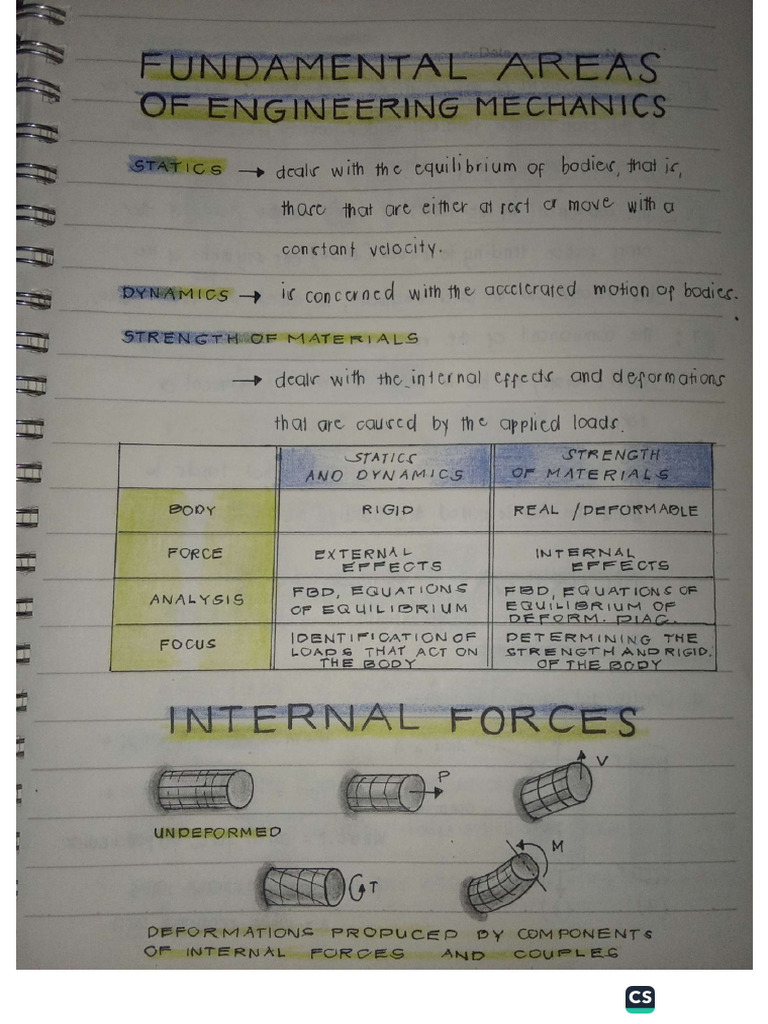 FUNDAMENTAL AREAS
OF ENGINEERING MECHANICS
STATICS → deals with the equilibrium of bodies, that is,
those that are either at rest or move with a
constant velocity.
DYNAMICS → is concerned with the accelerated motion of bodies.
STRENGTH OF MATERIALS
→ deals with the internal effects and deformations
that are caused by the applied loads.
STATICS
AND DYNAMICS
STRENGTH
OF MATERIALS
BODY
RIGID
REAL / DEFORMABLE
FORCE
EXTERNAL
EFFECTS
INTERNAL
EFFECTS
ANALYSIS
FBD, EQUATIONS
OF EQUILIBRIUM
FBD, EQUATIONS OF
EQUILIBRIUM OF
DEFORM. DIAG.
FOCUS
IDENTIFICATION OF
LOADS THAT ACT ON
THE BODY
DETERMINING THE
STRENGTH AND RIGID.
OF THE BODY
INTERNAL FORCES
P
V
UNDEFORMED
T
M
DEFORMATIONS PRODUCED BY COMPONENTS
OF INTERNAL FORCES AND COUPLES
CS